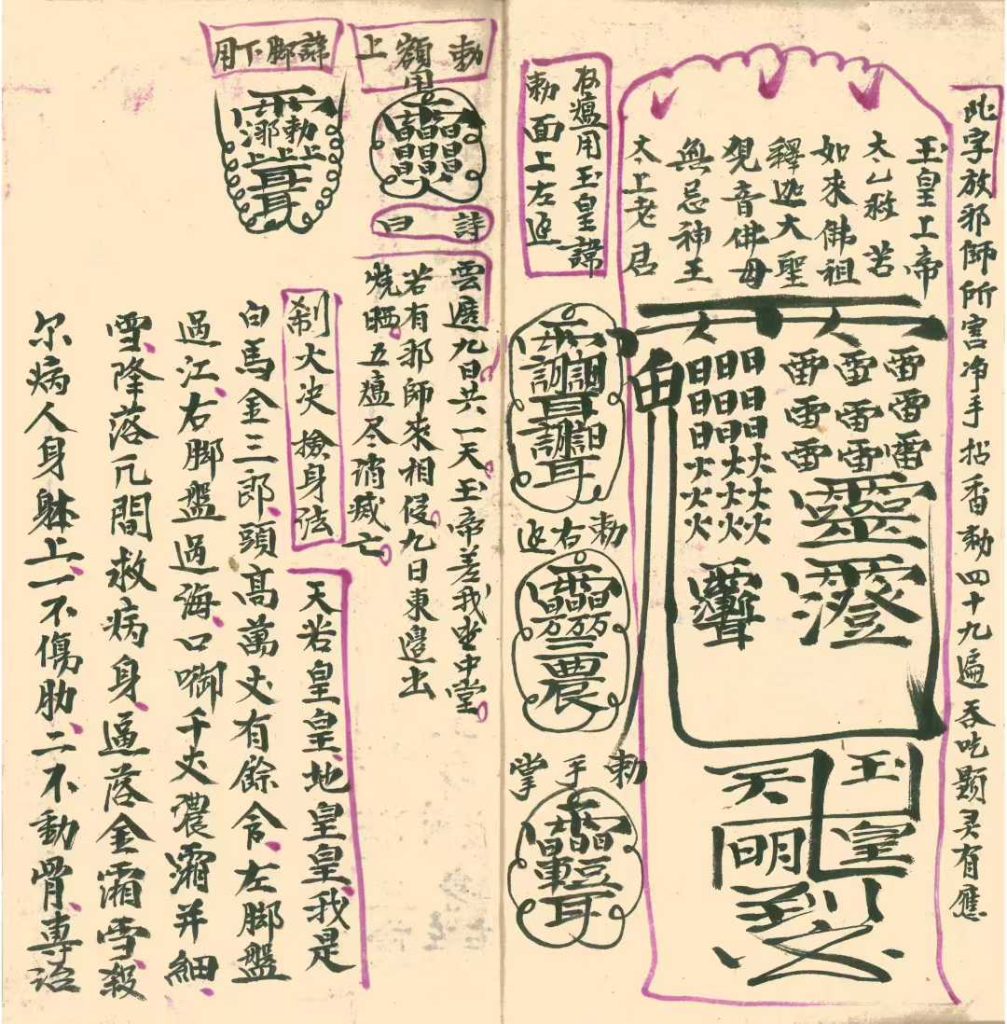 此字放邪師所害净手拈香勅四十九遍吞吃顯灵有應
玉皇上帝
太乙救苦
如來佛祖
釋迦大聖
观音佛母
無忌神王
太上老君
雷雷雷
雷雷雷
雷雷雷
日日日火火火
日日日火火火
日日日火火火
靈
玉皇
天明
到
瘟用玉皇諱
勅面上左边
勅右边
勅手掌
勅額用上
諱脚下用
詩曰
雲遮九日共一天玉帝差我坐中堂
若有邪師來相侵九日東邊出
燒晒五瘟尽消滅亡
刹火决撿身法
天若皇皇地皇皇我是
白馬金三郎頭高萬丈有餘令左脚盤
過江右脚盤過海口啣千丈濃霜并細
雪降落凡間救病身逼落金霜雪殺
尔病人身躰上一不傷肋二不動骨專治